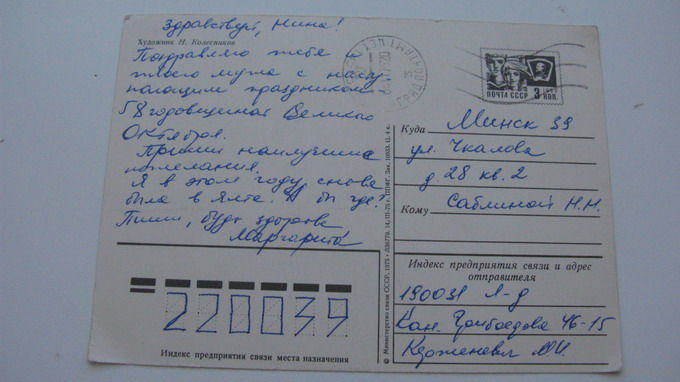 Здравствуй, Нина!
Художник Н. Колесников
Поздравляю тебя и
твоего мужа с насту
пающим праздником
58 годовщиной Велико
Октября.
Прими наилучшие
пожелания.
Я в этом году снова
была в Ялте. А вы где?
Пиши, будь здорова
Маргарита
ПОЧТА СССР 3 КОП.
Куда Минск 39
ул. Чкалова
д 28 кв. 2
Кому Саблиной Н.Н.
Индекс предприятия связи и адрес
отправителя
190031 Л-д
Кан. Грибоедова 46-15
М.И.
220039
Индекс предприятия связи места назначения
© Министерство связи СССР, 1975